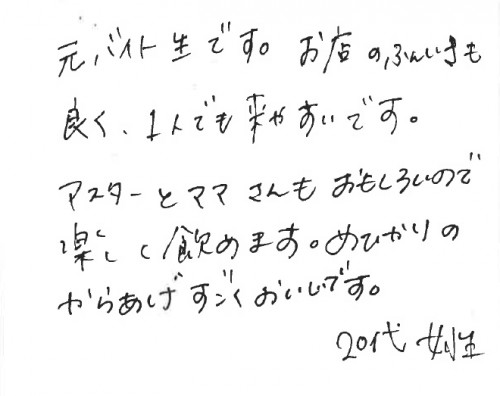 元バイト生です。お店のふんいきも
良く、1人でも来やすいです。
マスターとママさんもおもしろいので
楽しく飲めます。めひかりの
からあげすごくおいしいです。
20代 女性